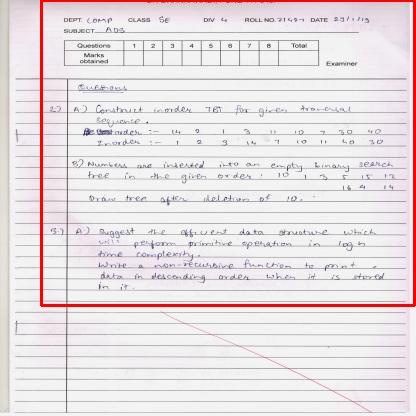 DEPT. COMP CLASS SE DIV 4 ROLL NO. DATE 23/1/19
SUBJECT ADS
Questions 1 2 3 4 5 6 7 8 Total
Marks obtained
Examiner
Questions
2.) A.) Construct inorder TBT for given traversal
sequence.
order :- 14 2 1 3 11 10 7 30 40
Inorder :- 1 2 3 14 7 10 11 40 30
B) Numbers are inserted into an empty binary search
tree in the given order: 10 1 3 5 15 12
16 4 14
Draw tree after deletion of 10.
3.) A.) Suggest the efficient data structure which
will perform primitive operation in log n
time complexity.
Write a non-recursive function to print
data in descending order when it is stored
in it.